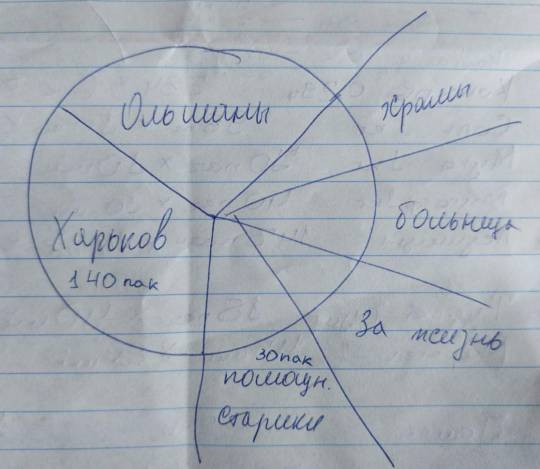 Ольшаны
Храмы
больница
Харьков
140 пак
За жизнь
30 пак
помощн.
старики